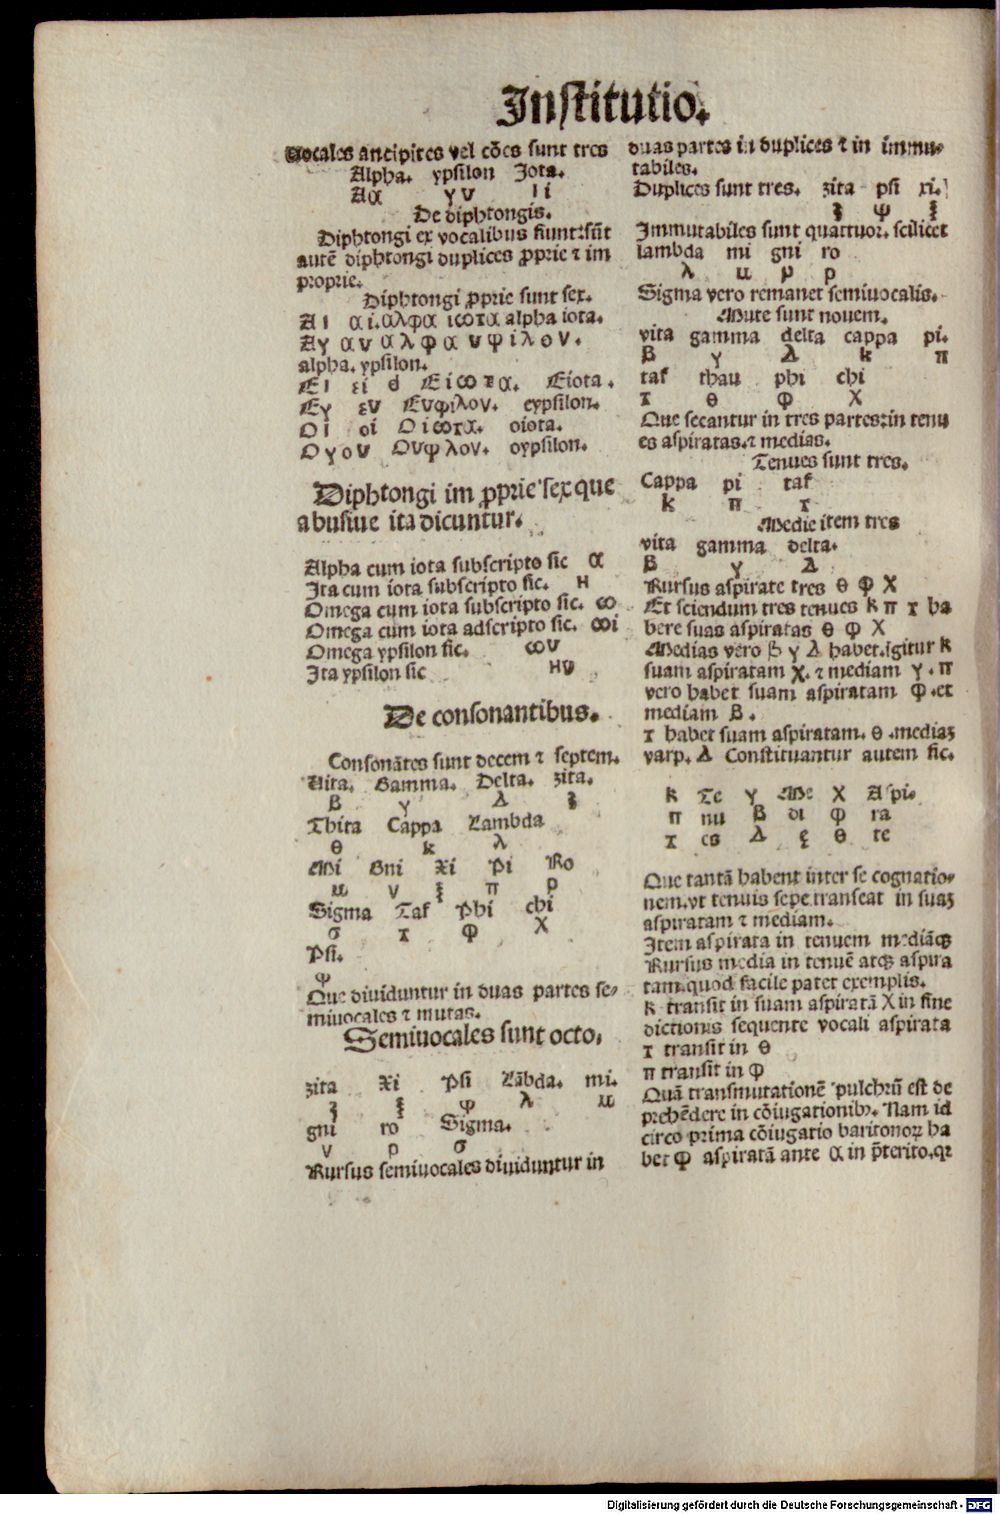 Institutio.
Vocales ancipites vel cōes sunt tres
Alpha. ypsilon Jota.
Aα γυ Ιi
De diphtongis.
Diphtongi ex vocalibus fiunt: sūt
autē diphtongi duplices ꝓprie ⁊ im
proprie.
Diphtongi ꝓprie sunt sex.
Αι αi. αλφα ιωτα alpha iota.
Αγ αυ αλφα υψιλον.
alpha. ypsilon.
Ει εi Ειωτα. Eiota.
Εγ ευ Ευψιλον. eypsilon.
Οι οi Οiωτα. oiota.
Ογου Ουψλον. oypsilon.
Diphtongi im ꝓprie sex que
abusiue ita dicuntur.
Alpha cum iota subscripto sic α
Ita cum iota subscripto sic. Η
Omega cum iota subscripto sic. ω
Omega cum iota adscripto sic. ωi
Omega ypsilon sic. ωυ
Ita ypsilon sic Ηυ
De consonantibus.
Consonātes sunt decem ⁊ septem.
Vita. Gamma. Delta. zita.
β γ Δ ʒ
Thita Cappa Lambda
θ k λ
Mi Gni Xi Pi Ro
μ ν ξ π ρ
Sigma Taf Phi chi
σ τ φ χ
Psi.
ψ
Que diuiduntur in duas partes se-
miuocales ⁊ mutas.
Semiuocales sunt octo.
zita Xi Psi Lābda. mi.
ʒ ξ ψ λ μ
gni ro Sigma.
ν ρ σ
Rursus semiuocales diuiduntur in
duas partes in duplices ⁊ in immu-
tabiles.
Duplices sunt tres. zita psi xi.
ʒ ψ ξ
Immutabiles sunt quattuor. scilicet
lambda mi gni ro
λ μ ν ρ
Sigma vero remanet semiuocalis.
Mute sunt nouem.
vita gamma delta cappa pi.
β γ Δ k π
taf thau phi chi
τ θ φ χ
Que secantur in tres partes: in tenu
es aspiratas. ⁊ medias.
Tenues sunt tres.
Cappa pi taf
k π τ
Medie item tres
vita gamma delta.
β γ Δ
Rursus aspirate tres θ φ χ
Et sciendum tres tenues k π τ ha
bere suas aspiratas θ φ χ
Medias vero β γ Δ habet. igitur k
suam aspiratam χ. ⁊ mediam γ. π
vero habet suam aspiratam φ. et
mediam β.
τ habet suam aspiratam. θ. mediaʒ
varp. Δ Constituantur autem sic.
k Te γ Me χ Aspi-
π nu β di φ ra
τ es Δ ę θ te
Que tantā habent inter se cognatio-
nem. vt tenuis sepe transeat in suaʒ
aspiratam ⁊ mediam.
Item aspirata in tenuem mediāqꝫ
Rursus media in tenuē atqꝫ aspira
tam. quod facile patet exemplis.
k transit in suam aspiratā χ in fine
dictionis sequente vocali aspirata
τ transit in θ
π transit in φ
Quā transmutationē pulchrū est de
prehēdere in cōiugationibꝰ. Nam id
circo prima cōiugatio baritonoꝝ ha
bet φ aspiratā ante α in p̄terito. qꝛ
Digitalisierung gefördert durch die Deutsche Forschungsgemeinschaft - DFG